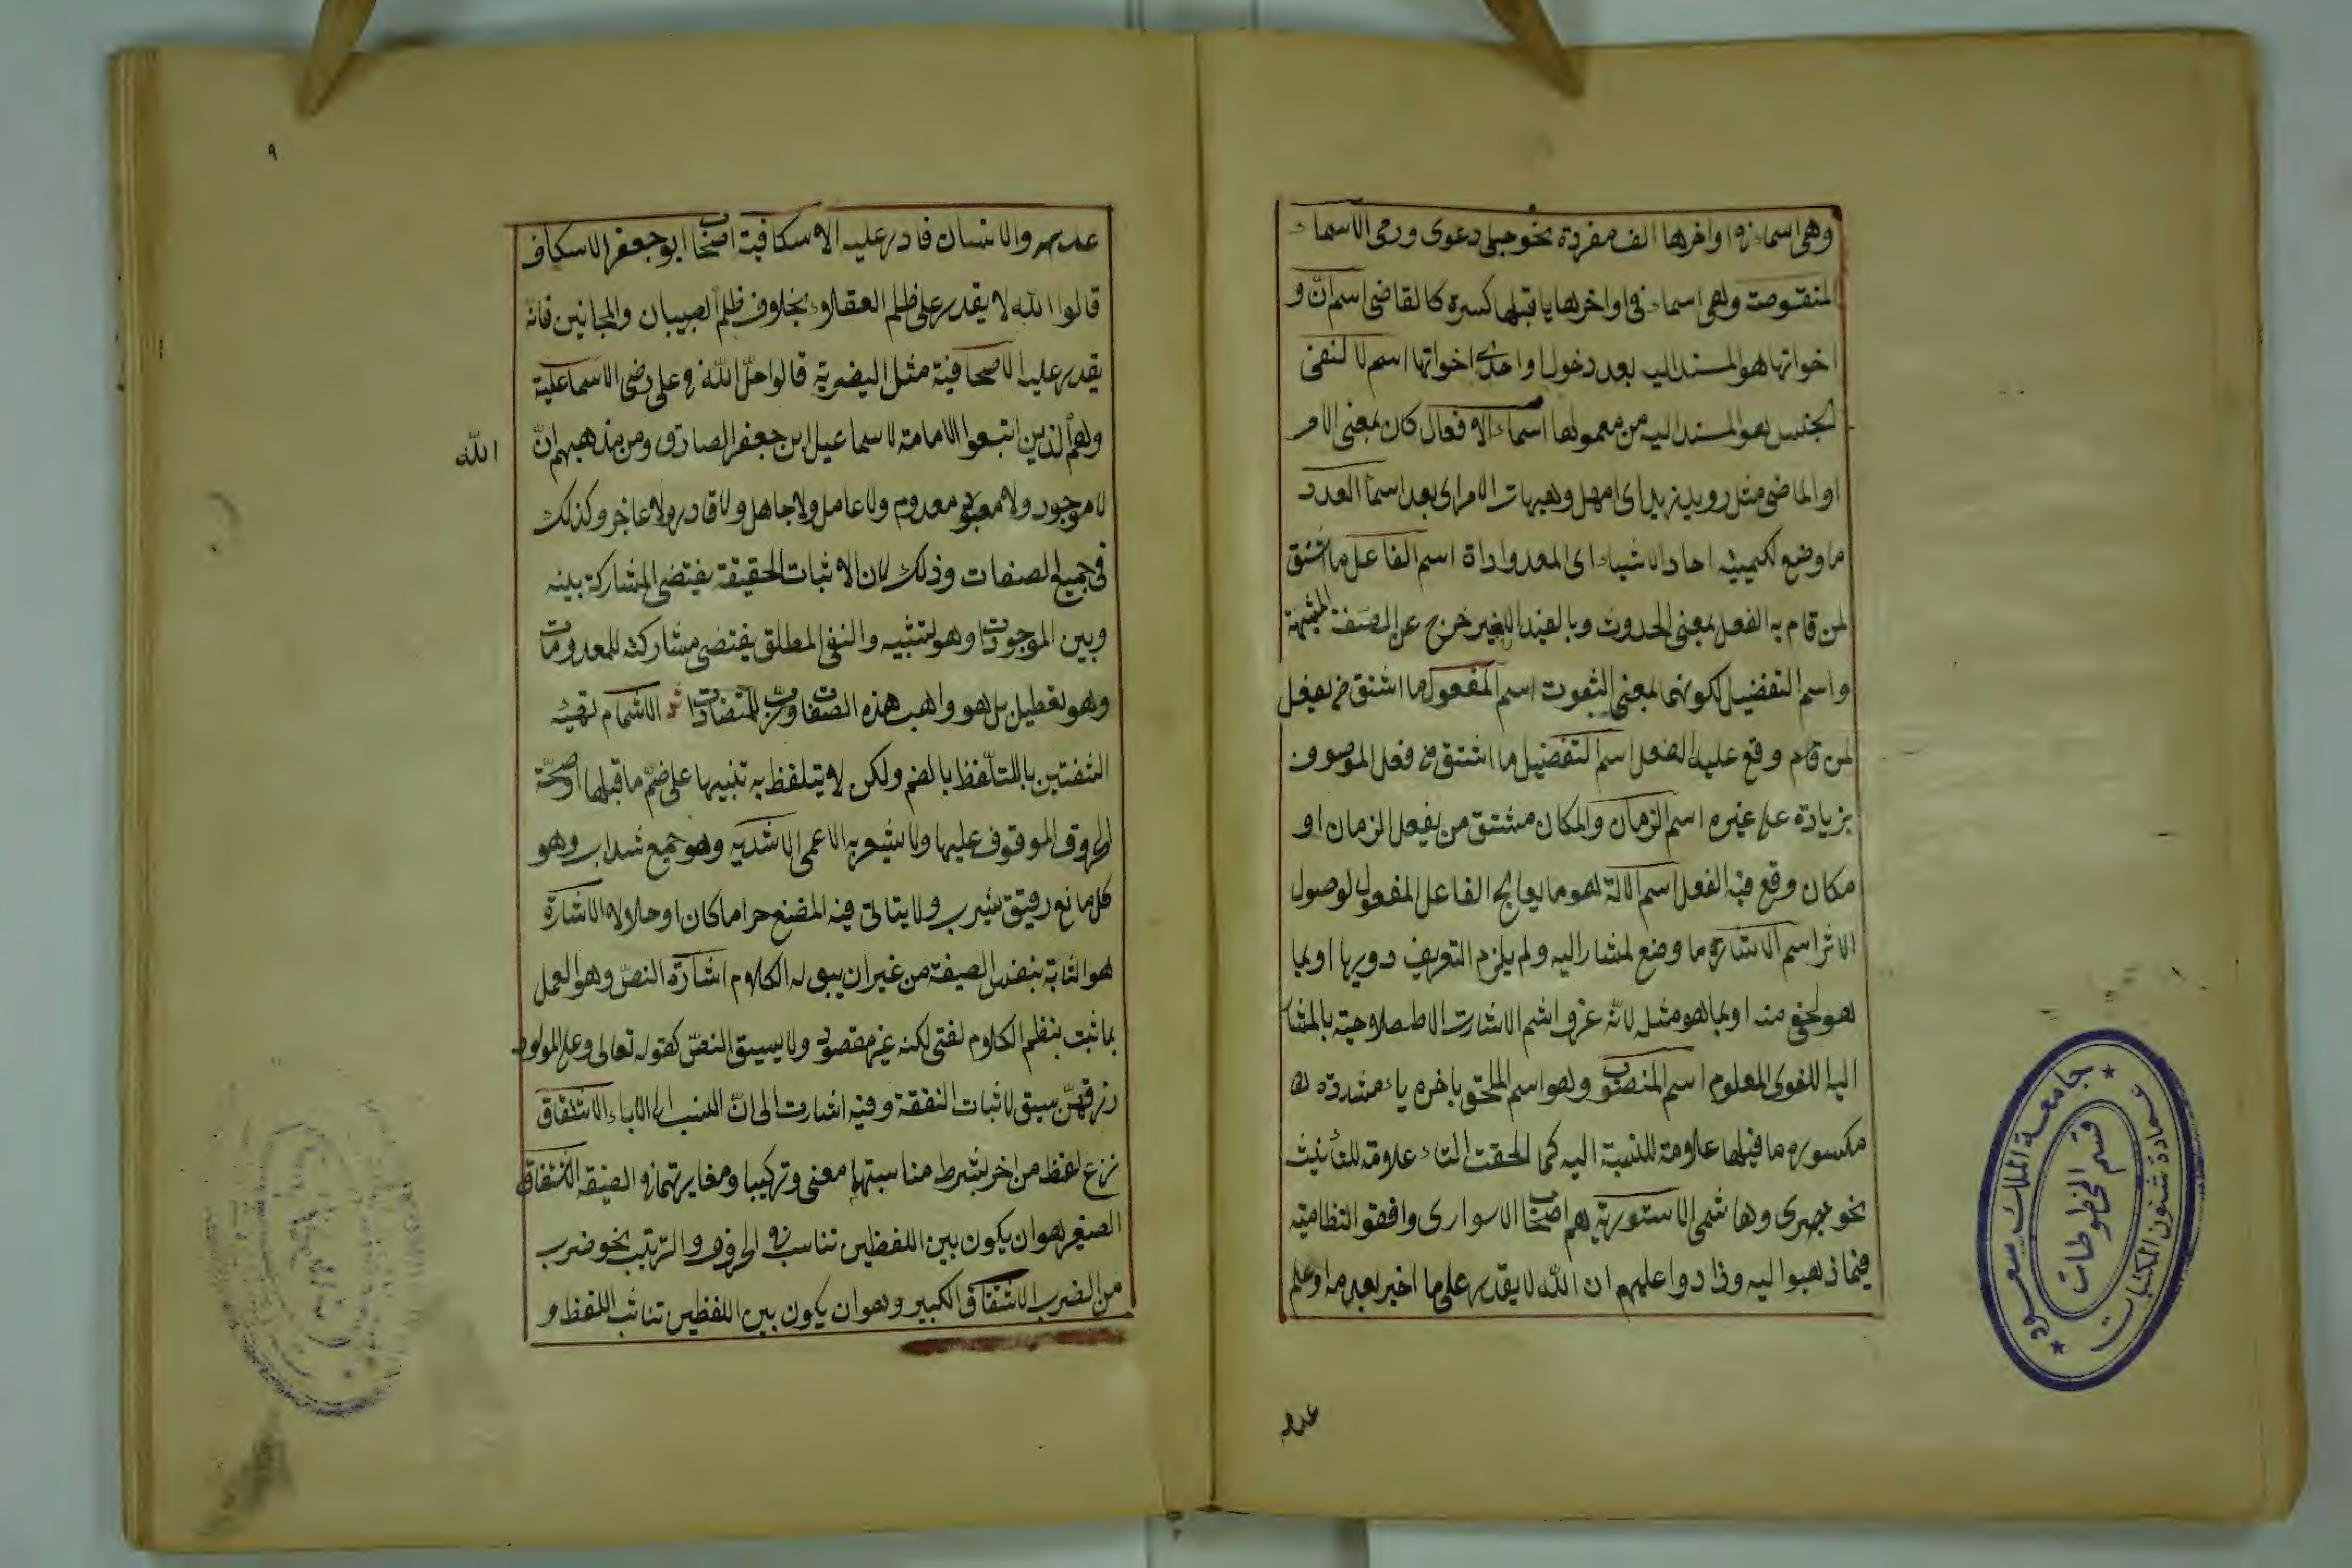 وهى اسماء فى اواخرها الف مفردة نحو حبلى دعوى ورحى الاسماء
المنقوصة وهى اسماء فى اواخرها يا قبلها كسرة كالقاضى اسم انّ و
اخواتها هو المسند اليه بعد دخولها واحدى اخواتها اسم لا لنفى
الجنس هو المسند اليه من معمولها اسماء الافعال كان بمعنى الامر
او الماضى مثل رويد زيدا اى امهل وهيهات الامر اى بعد اسما العدد
ما وضع لكمية احاد الاشياء اى المعدوداة اسم الفاعل ما اشتق
لمن قام به الفعل بمعنى الحدوث وبالقيد الاخير خرج عن الصفة المشبهة
واسم التفضيل لكونهما بمعنى الثبوت اسم المفعول ما اشتق من يفعل
لمن قام وقع عليه الفعل اسم التفضيل ما اشتق من فعل الموصوف
بزيادة على غيره اسم الزمان والمكان مشتق من يفعل الزمان او
مكان وقع فيه الفعل اسم الالة هو ما يعالج الفاعل المفعول لوصول
الاثر اسم الاشاره ما وضع لمشار اليه ولم يلزم التعريف دوريا او بما
هو اخفى منه او بما هو مثله لانه عرف اسم الاشارت الاطصلاحية بالمشا
اليه اللغوى المعلوم اسم المنصوب وهو اسم الملحق باخره ياء مشددة
مكسوره ما قبلها علامة للنسبة اليه كما الحقت التاء علامة للتأنيث
نحو بصرى وهاشمى الاستورية هم اصحاب الاسوارى وافقو النظامية
فيما ذهبوا اليه وزادوا عليهم ان الله لا يقدر على ما اخبر بعدمه او علم
عدمه
جامعة الملك سعود
عمادة شئون المكتبات
قسم المخطوطات
٩
عدمه والانسان قادر عليه الاسكافية اصحاب ابو جعفر الاسكاف
قالوا الله لا يقدر على ظلم العقلاء بخلاف ظلم الصبيان والمجانين فانه
يقدر عليه الاصحافية مثل النصرية قالوا حلّ الله فى على رضى الاسماعلية
وهم الذين اتبعوا الامامة لاسماعيل ابن جعفر الصادق ومن مذهبهم انّ
الله
لا موجود ولا معدوم ولا عامل ولا جاهل ولا قادر ولا عاجز وكذلك
فى جميع الصفات وذلك لان الاثبات الحقيقة يقتضى المشاركة بينه
وبين الموجودات وهو تشبيه والنفى المطلق يقتضى مشاركته للمعدومات
وهو تعطيل بل هو واهب هذه الصفات ورب المتضادات الاشمام تهيئه
الشفتين بالتلفظ بالضم ولكن لا يتلفظ به تنبيها على ضم ما قبلها
الحروف الموقوف عليها ولا يشعر به الاعمى الاشربه وهو جميع شراب وهو
كل مائع رقيق يشرب ولا يتاتى فيه المضغ حراما كان او حلالا الاشارة
هو الثابة بنفس الصيغة من غير ان يسق له الكلام اشارة النص وهو العمل
بما ثبت بنظم الكلام لغة لكنه غير مقصود ولا يسيق النصّ كقوله تعالى وعلى المولود
رزقهنّ سيق لاثبات النفقة وفيه اشارت الى انّ النسب الى الاباء الاشتقاق
نزع لفظ من اخر بشرط مناسبتهما معنى وتركيبا ومغايرتهما فى الصيغة الاشتقاق
الصغير هو ان يكون بين اللفظين تناسب فى الحروف والترتيب نحو ضرب
من الضرب الاشتقاق الكبير وهو ان يكون بين اللفظين تناسب اللفظ و